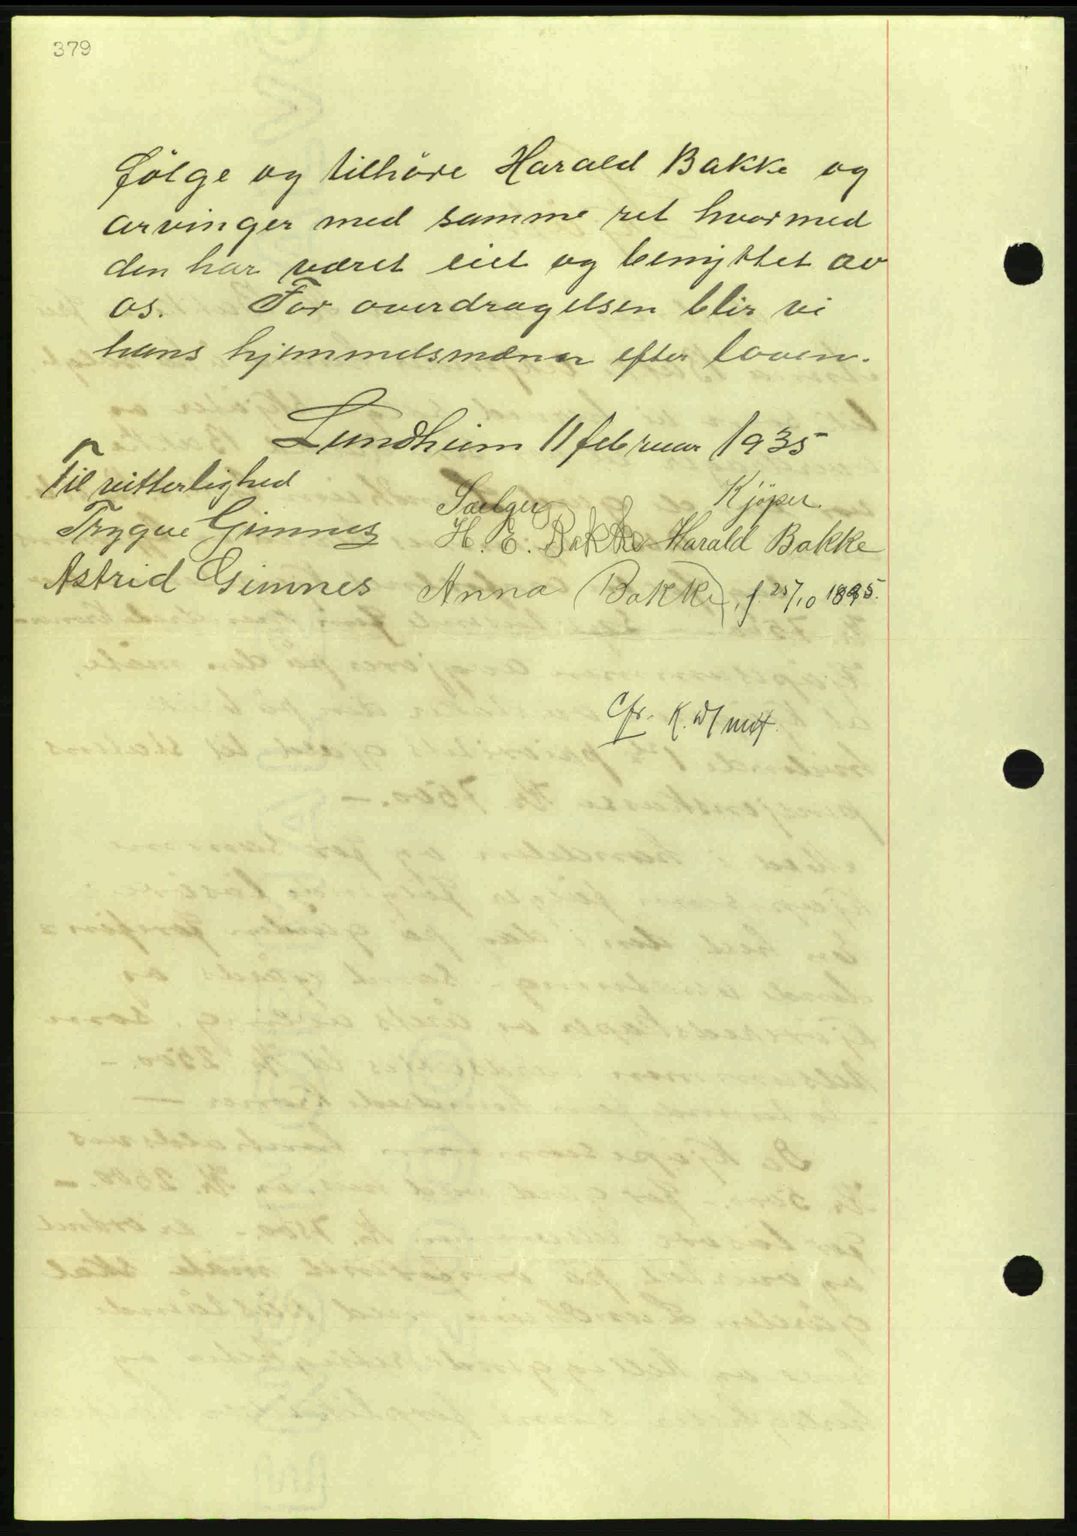 379
følge og tilhöre Harald Bakke og
arvinger med samme ret hvormed
den har været eiet og benyttet av
os. For overdragelsen blir vi
hans hjemmelsmænn efter loven.
Lundheim 11 februar 1935
Til vitterlighed
Trygve Gimnes
Astrid Gimnes
Sælger
H. E. Bakke
Anna Bakke, f. 25/10 1895.
Kjöper
Harald Bakke
Cfr. K.